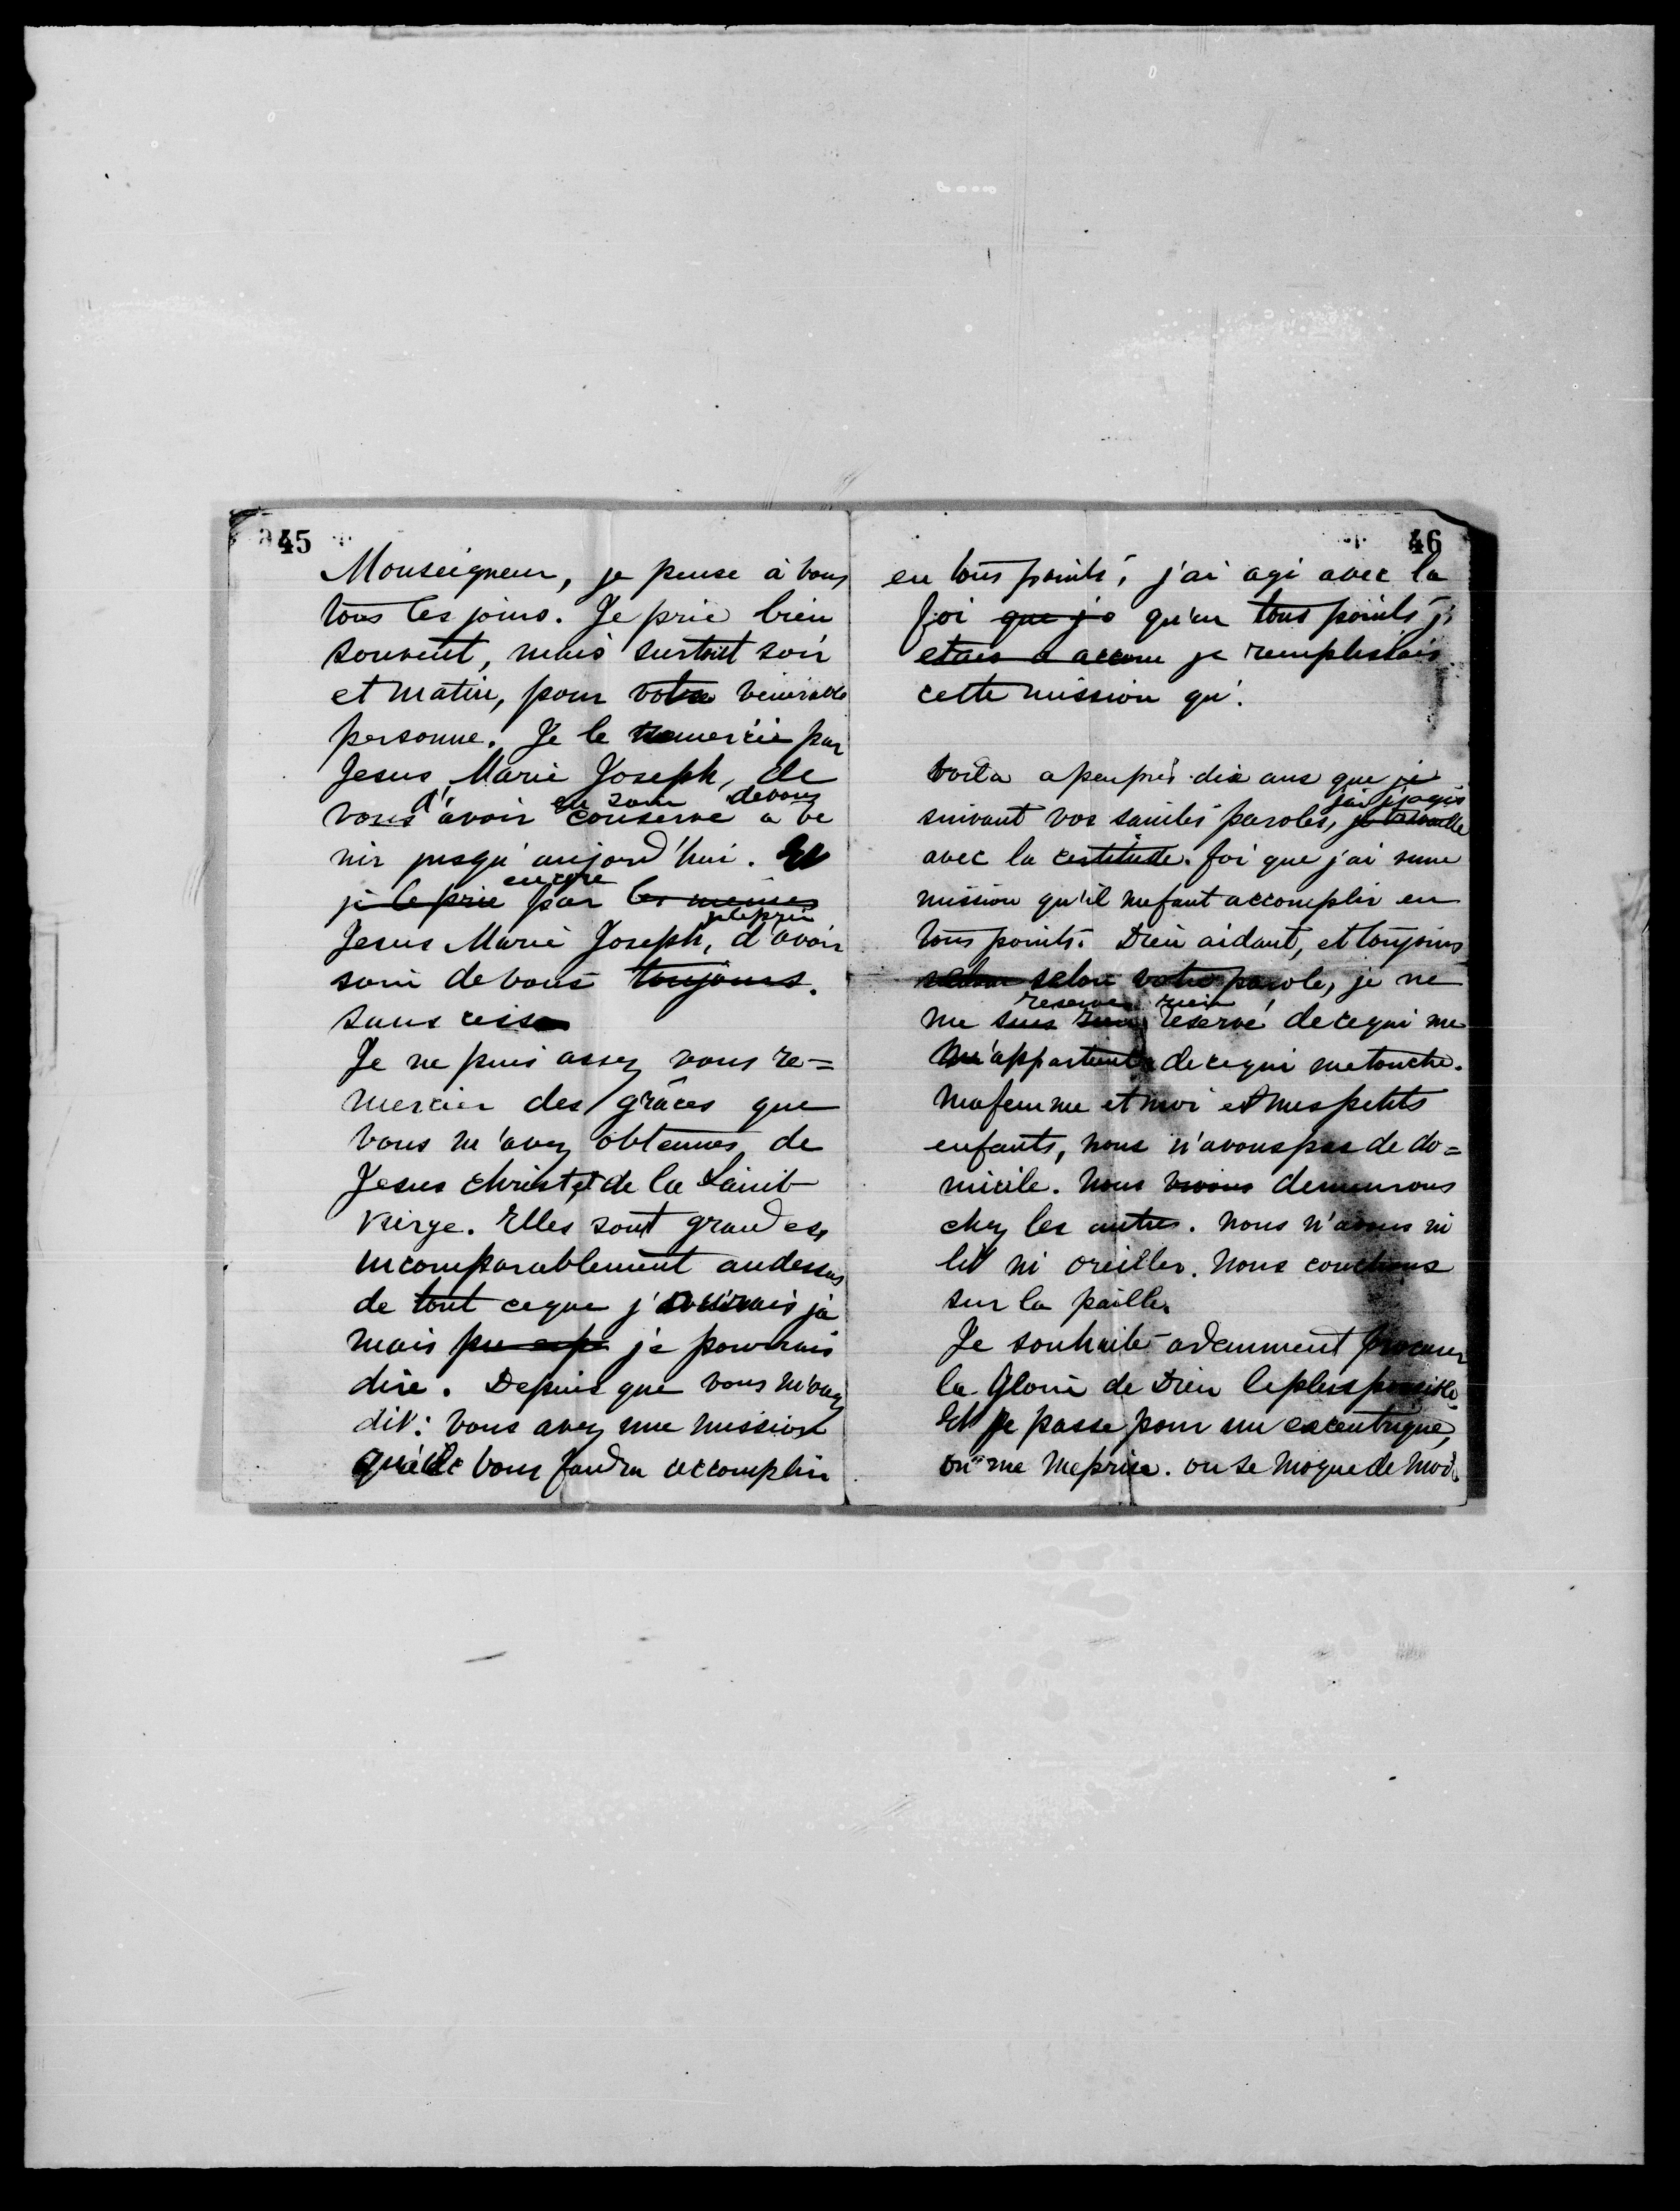 45
Monseigneur, je pense à vous
tous les jours. Je prie bien
souvent, mais surtout soir
et matin, pour votre vénérable
personne. Je le remercie par
Jesus, Marie Joseph, de
d' eu soin de vous
vous avoir conservé a ve
nir jusqu'aujourd'hui. Et
encore
je le prie par les memes
je le prie
Jesus Marie Joseph, d'avoir
soin de vous toujours.
sans cesse
Je ne puis assez vous re=
mercier des grâces que
vous m'avez obtenues de
Jesus christ et de la Saint
vierge. Elles sont grandes,
incomparablement audessus
de tout ceque j' ja
mais je pourrais
dire. Depuis que vous m'avez
dit: vous avez une mission
qu'il vous faudra accomplir
46
en tous points, j'ai agi avec la
foi que je qu'en tous points j'
etais a accom je remplissais
cette mission qu'.
Voila apeuprès dix ans que je
j'ai j'agis
suivant vos saintes paroles, je travaille
avec la certitude. foi que j'ai une
mission qu'il mefaut accomplir en
tous points. Dieu aidant, et toujours
selon selon votre parole, je ne
reserve rien
me suis rien reservé de cequi me
m'appartient de cequi metouche.
Mafemme et moi et mespetits
enfants, nous n'avonspas de do=
micile. Nous vivons demeurons
chez les autres. Nous n'avons ni
lit ni oreiller. Nous couchons
sur la paille.
Je souhaite ardemment procurer
la Gloire de Dieu leplus possible
Et je passe pour un excentrique,
on me meprise. on se moque de moi.